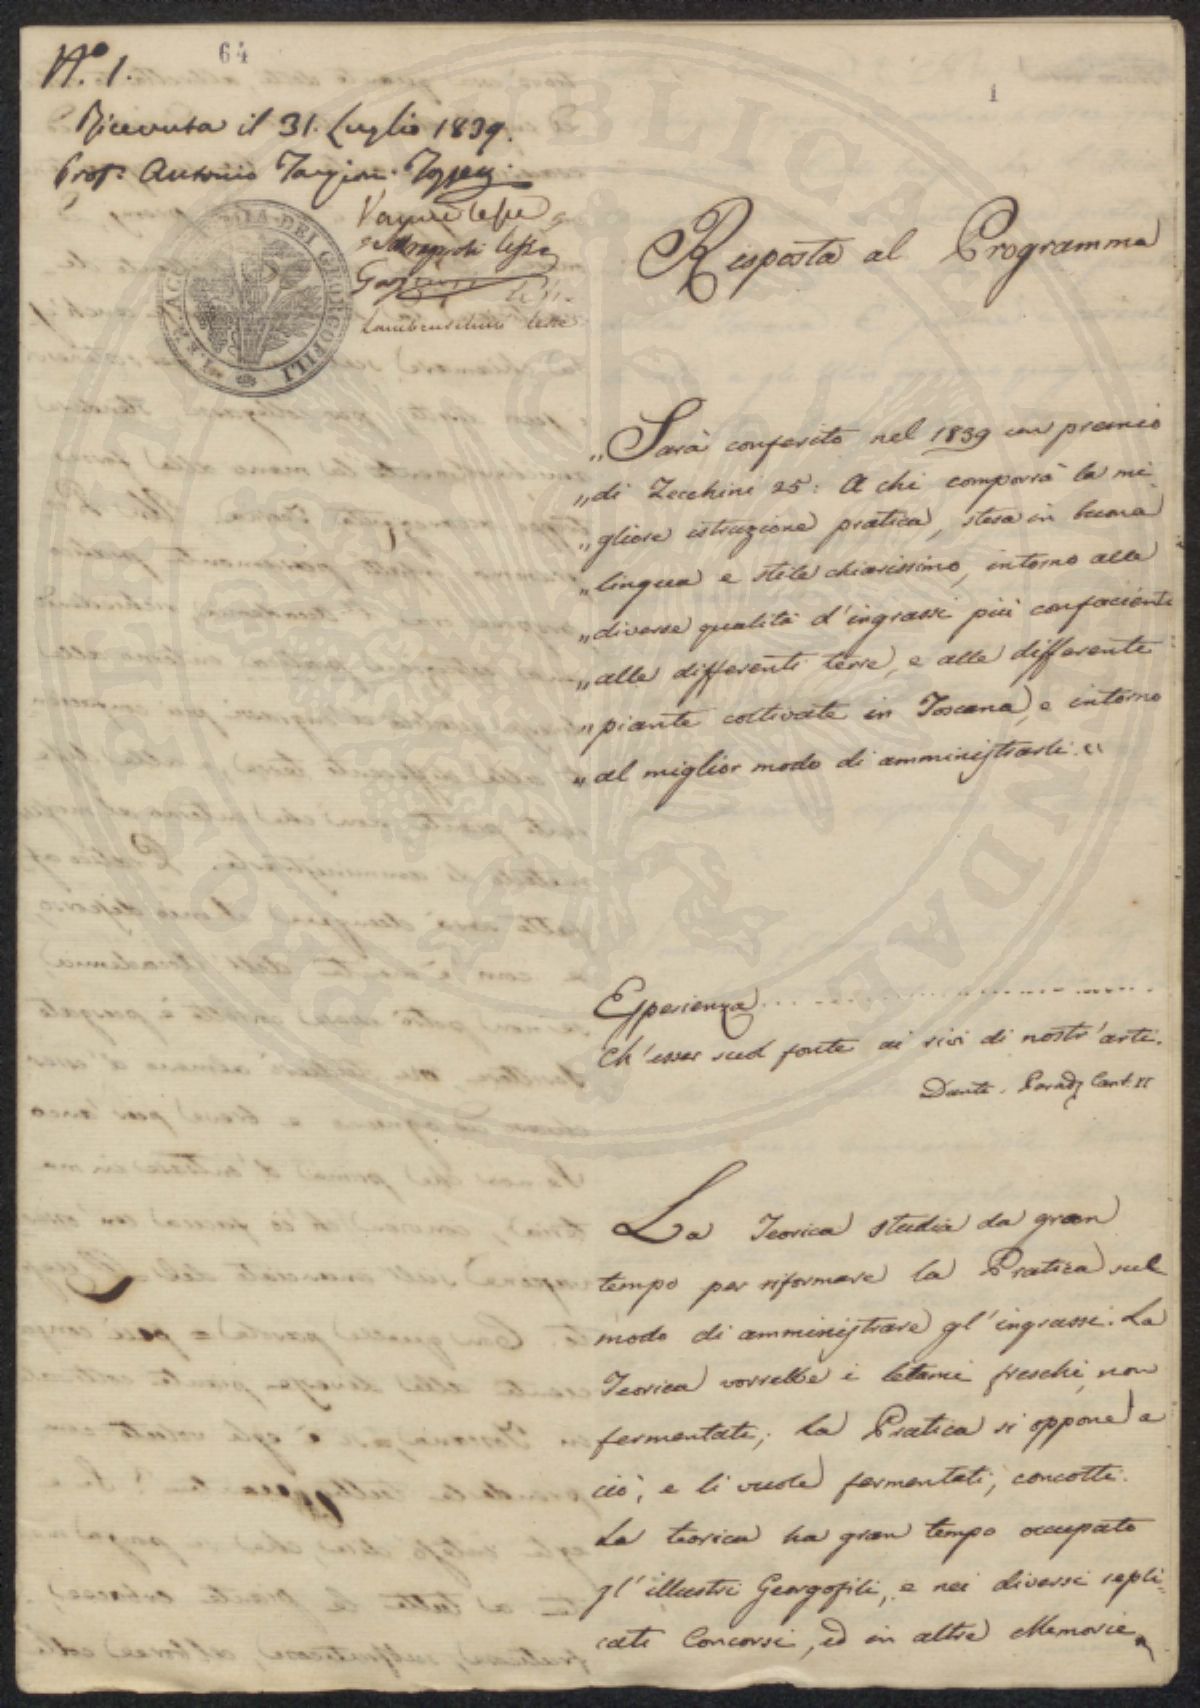 N.º 1.
64
1
Ricevuta il 31. Luglio 1839.
Prof. Antonio Targioni Tozzetti
lesse
lesse
Lambruschini lesse
I. E R. ACCADEMIA DEI GEORGOFILI
Risposta al Programma
„Sarà conferito nel 1839 un premio
„di Zecchini 25: A chi comporrà la mi-
„gliore istruzione pratica, stesa in buona
„lingua e stile chiarissimo, intorno alle
„diverse qualità d'ingrassi più confacienti
„alle differenti terre, e alle differenti
„piante coltivate in Toscana, e intorno
„al miglior modo di amministrarli."
Esperienza ........................
Ch'esser suol fonte ai rivi di nostr'arti.
Dante. Parad. Cant. II
La Teorica studia da gran
tempo per riformare la Pratica sul
modo di amministrare gl'ingrassi. La
Teorica vorrebbe i letami freschi, non
fermentati; La Pratica si oppone a
ciò, e li vuole fermentati, concotti.
La teorica ha gran tempo occupato
gl'illustri Georgofili, e nei diversi repli-
cati Concorsi, ed in altre Memorie